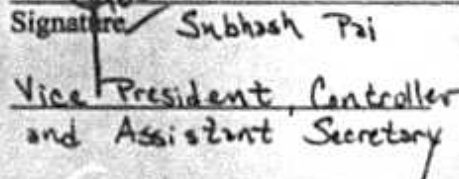 Signature Subhash Pai
Vice President, Controller
and Assistant Secretary